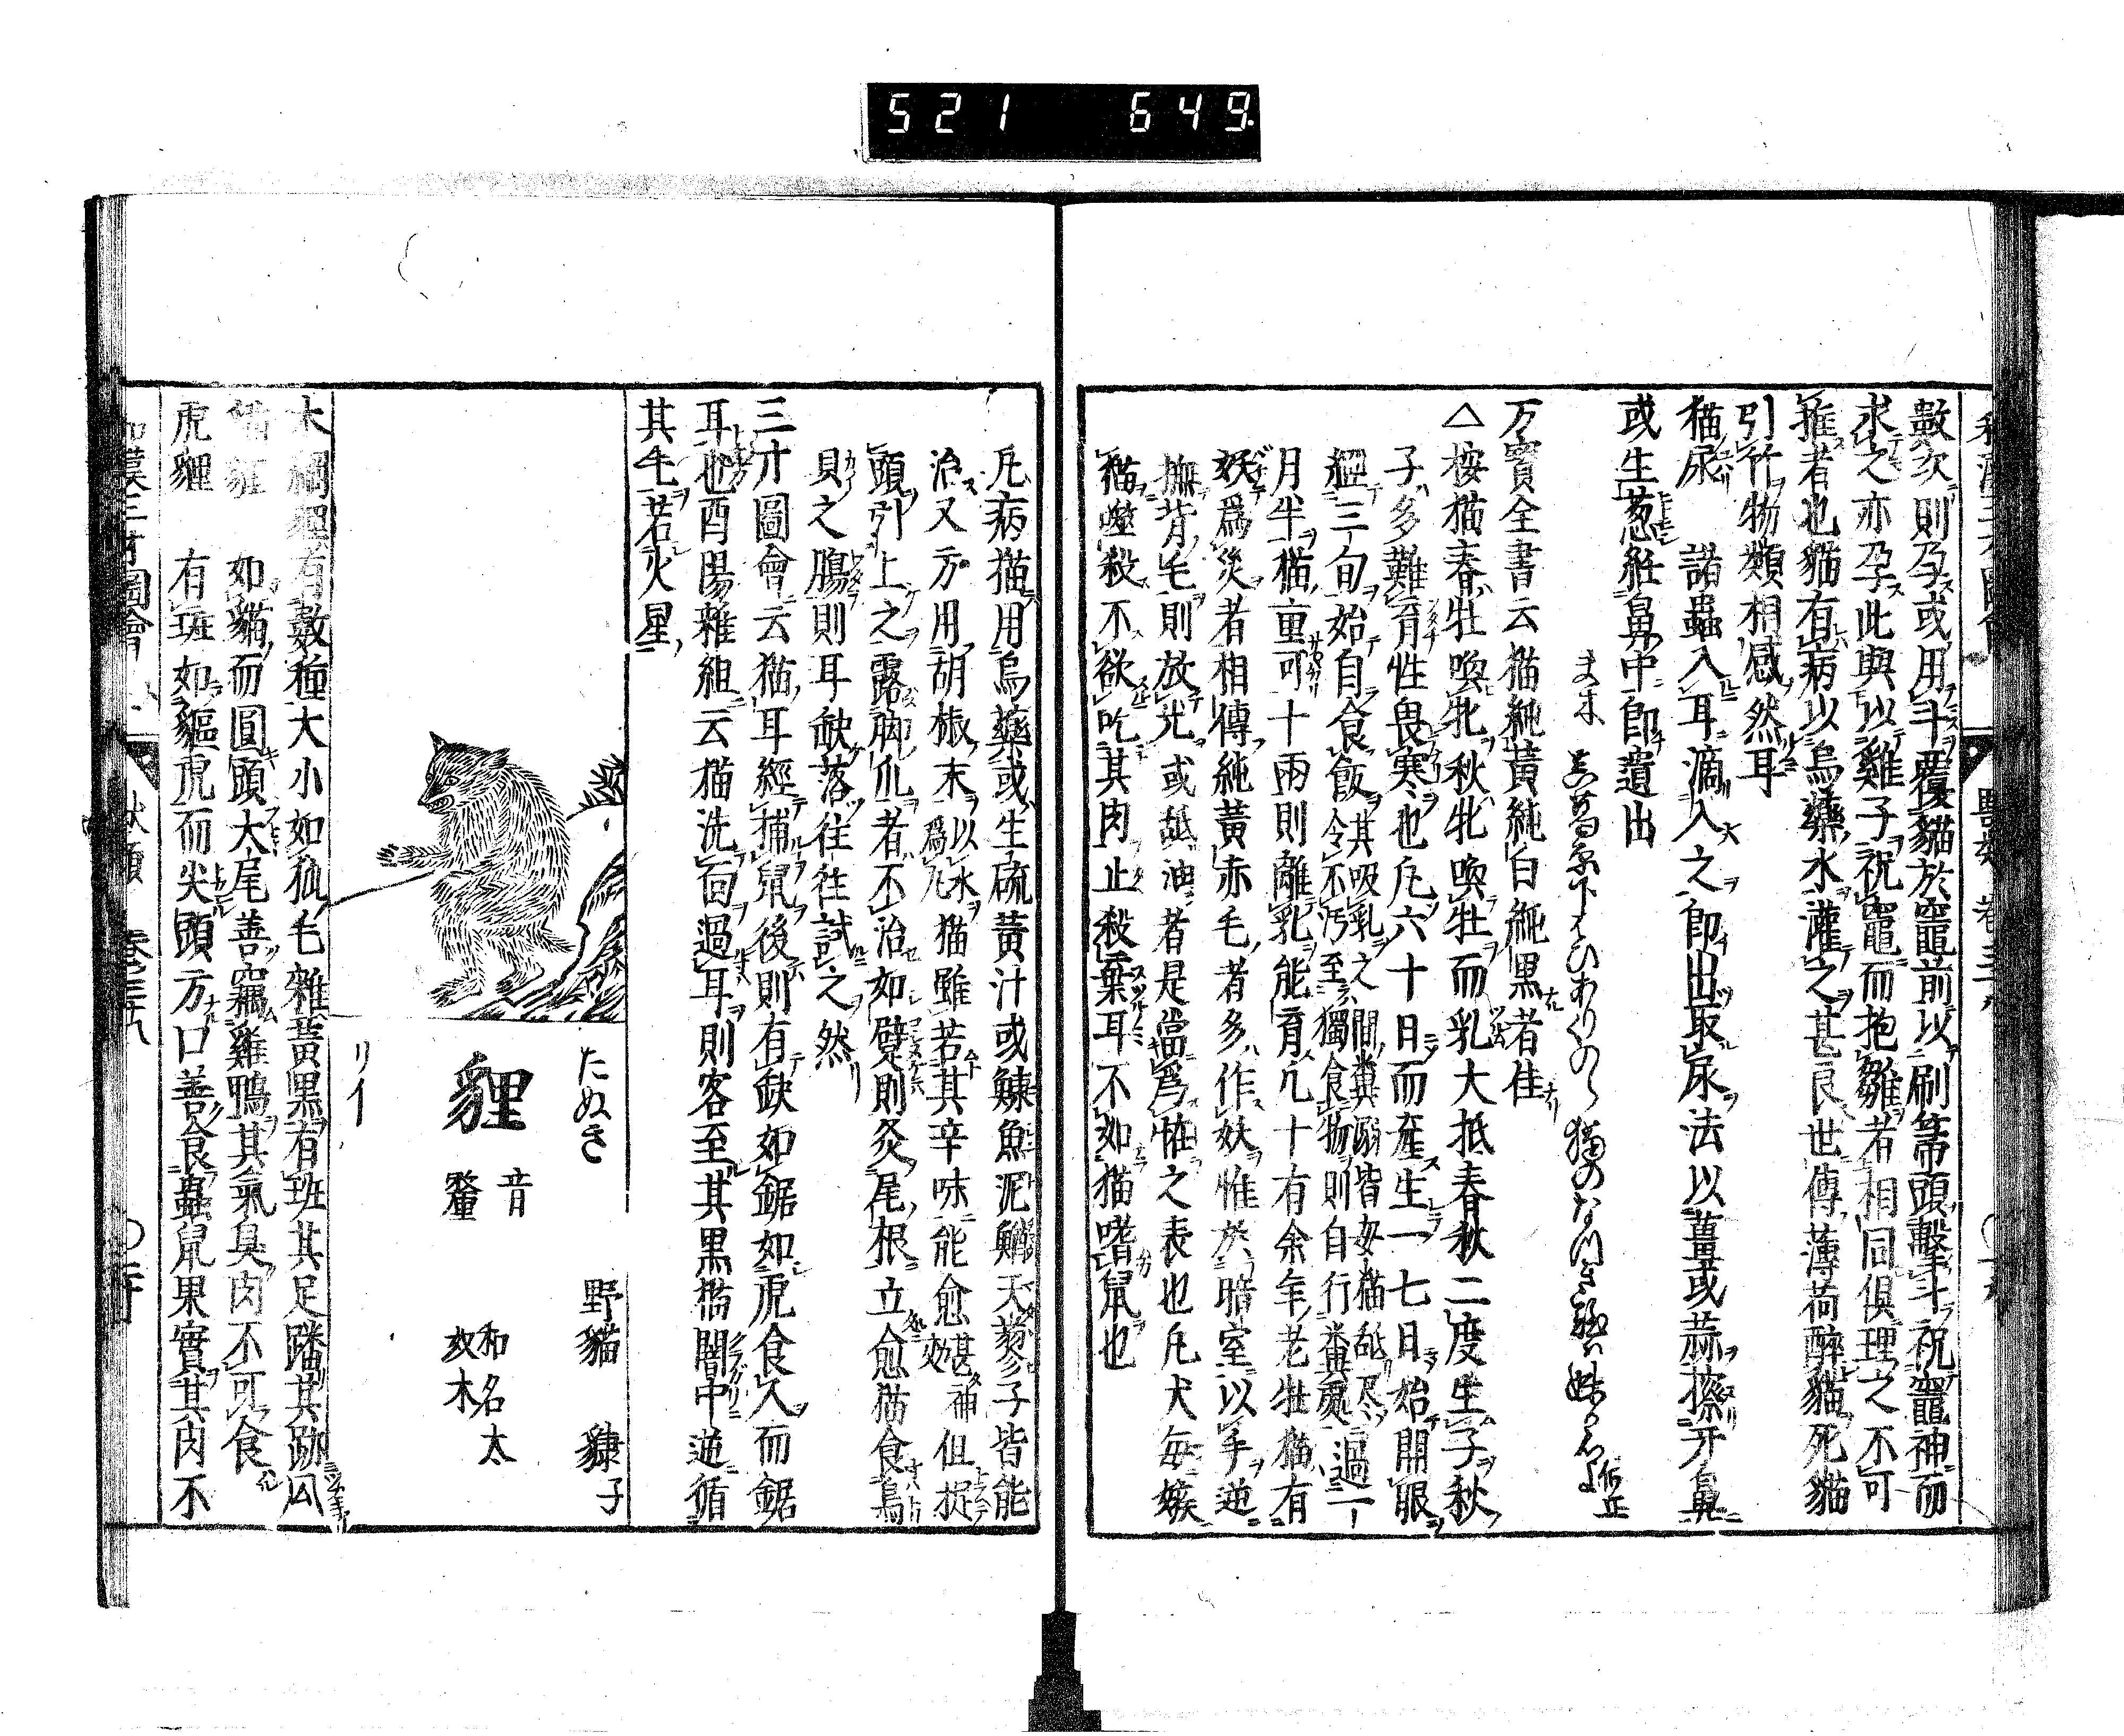 521 649
數次則孕或用斗覆貓於竈前以刷箒頭擊斗祝竈神而
求之亦孕此與以雞子祝竈而抱雛者相同俱理之不可
推者也貓有病以烏藥水灌之甚良世傳薄荷醉貓死貓
引竹物類相感然耳
猫尿 諸蟲入耳滴入之即出取尿法以薑或蒜擦牙鼻
或生葱紝鼻中即遺出
万寳全書云猫純黄純白純黒者佳
△按猫春牡喚牝秋牝喚牡而乳大抵春秋二度生子秋
子多難育性畏寒也凡六十日而産生一七日始開眼
經三旬始自食飯其吸乳之間糞溺皆母猫舐尽過一
令不汚至獨食物則自行糞處
月半猫重可十兩則離乳能育凢十有余年老牡猫有
妖爲災者相傳純黄赤毛者多作妖惟於暗室以手逆
撫背毛則放光或舐油者是當爲恠之表也凡犬毎嫉
猫噬殺不欲吃其肉止殺棄耳不如猫嗜鼠也
凡病猫用烏藥或生硫黄汁或鰊魚泥鰌天蓼子皆能
治又方用胡椒末以水爲丸猫雖若其辛味能愈甚神效但捉
頭引上之露脚爪者不治如躄則灸尾根立愈猫食烏
貝之膓則耳缺落往往試之然
三才圖會云猫耳經捕鼠後則有缺如鋸如虎食人而鋸
耳也酉陽雜組云猫洗面過耳則客至其黒猫闇中逆循
其毛若火星
たぬき 野貓 𧳟子
貍 音釐 和名太奴木
リイ
本綱貍有數種大小如狐毛雜黄黒有斑其足蹯其跡内
猫貍 如貓而圓頭大尾善竊雞鴨其氣臭肉不可食
虎貍 有斑如貙虎而尖頭方口善食蟲鼠果實其肉不